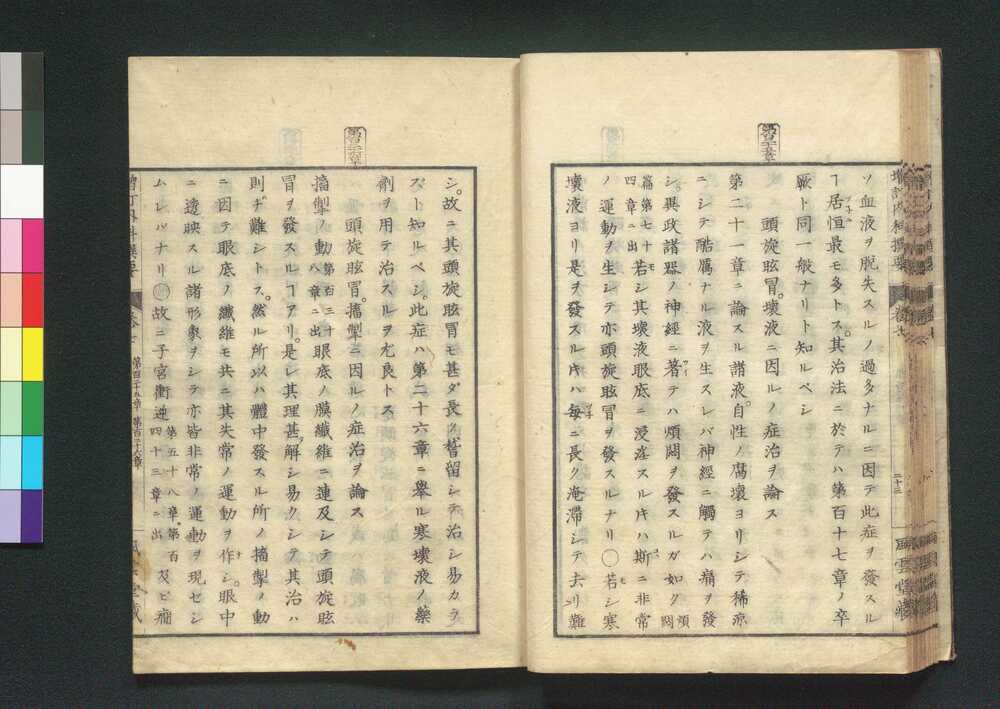 ソ血液ヲ脱失スルノ過多ナルニ因テ此症ヲ發スル
ヿ居恒最モ多トス。其治法ニ於テハ第百十七章ノ卒
厥ト同一般ナリト知ルベシ
頭旋眩冒。壞液ニ因ルノ症治ヲ論ス
第二十一章ニ論スル諸液。自性ノ腐壞ヨリシテ稀涼
ニシテ酷厲ナル液ヲ生スレバ神經ニ觸テハ痛ヲ發
シ。與政諸器ノ神經ニ著テハ煩悶ヲ發スルガ如ク煩悶
篇第七十四章ニ出若シ其壞液眼底ニ浸淫スル㐧ハ斯ニ非常
ノ運動ヲ生シテ亦頭旋眩冒ヲ發スルナリ○若シ寒
壞液ヨリ是ヲ發スル㐧ハ毎ニ長ク淹滯シテ去リ難
シ。故ニ其頭旋眩冒モ甚ダ長ク稽留シテ治シ易カラ
ズト知ルベシ。此症ハ第二十六章ニ擧ル寒壞液ノ藥
劑ヲ用テ治スルヲ尤良トス
頭旋眩冒。搐掣ニ因ルノ症治ヲ論ス
搐掣ノ動第百三十八章ニ出眼底ノ膜纖維ニ連及シテ頭旋眩
冒ヲ發スルヿアリ。是レ其理甚解シ易クシテ其治ハ
則チ難シトス。然ル所以ハ體中發スル所ノ搐掣ノ動
ニ因テ眼底ノ纖維モ共ニ其失常ノ運動ヲ作シ。眼中
ニ透映スル諸形象ヲシテ亦皆非常ノ運動ヲ現セシ
ムレバナリ○故ニ子宮衝逆第五十八章、第百四十三章ニ出及ヒ癎